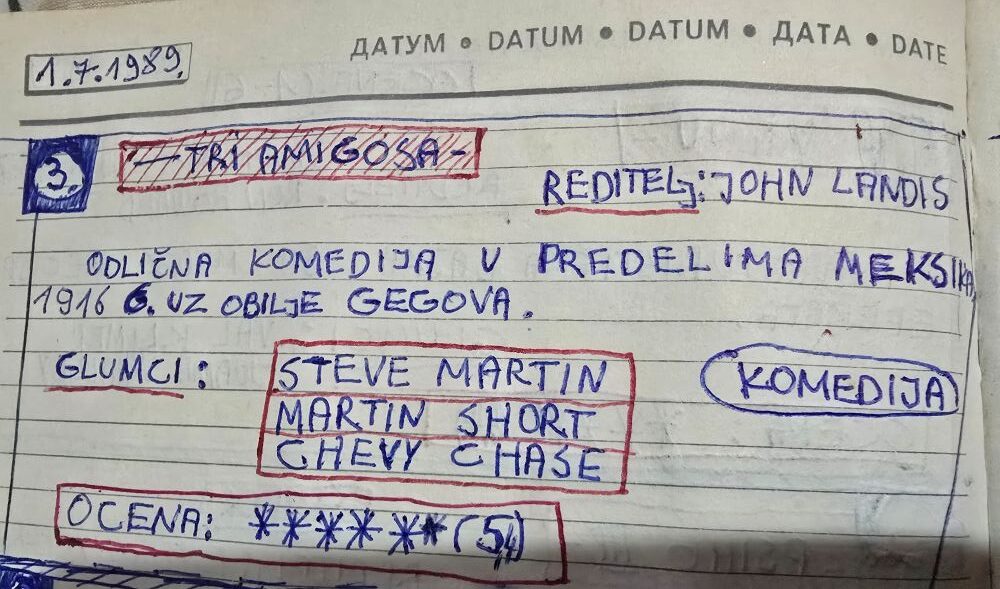 ДАТУМ • DATUM • DATUM • ДАТА • DATE
1.7.1989.
3. -TRI AMIGOSA-
REDITELJ: JOHN LANDIS
ODLIČNA KOMEDIJA U PREDELIMA MEKSIKA
1916 G. UZ OBILJE GEGOVA.
GLUMCI: STEVE MARTIN KOMEDIJA
MARTIN SHORT
CHEVY CHASE
OCENA: ****** (5)